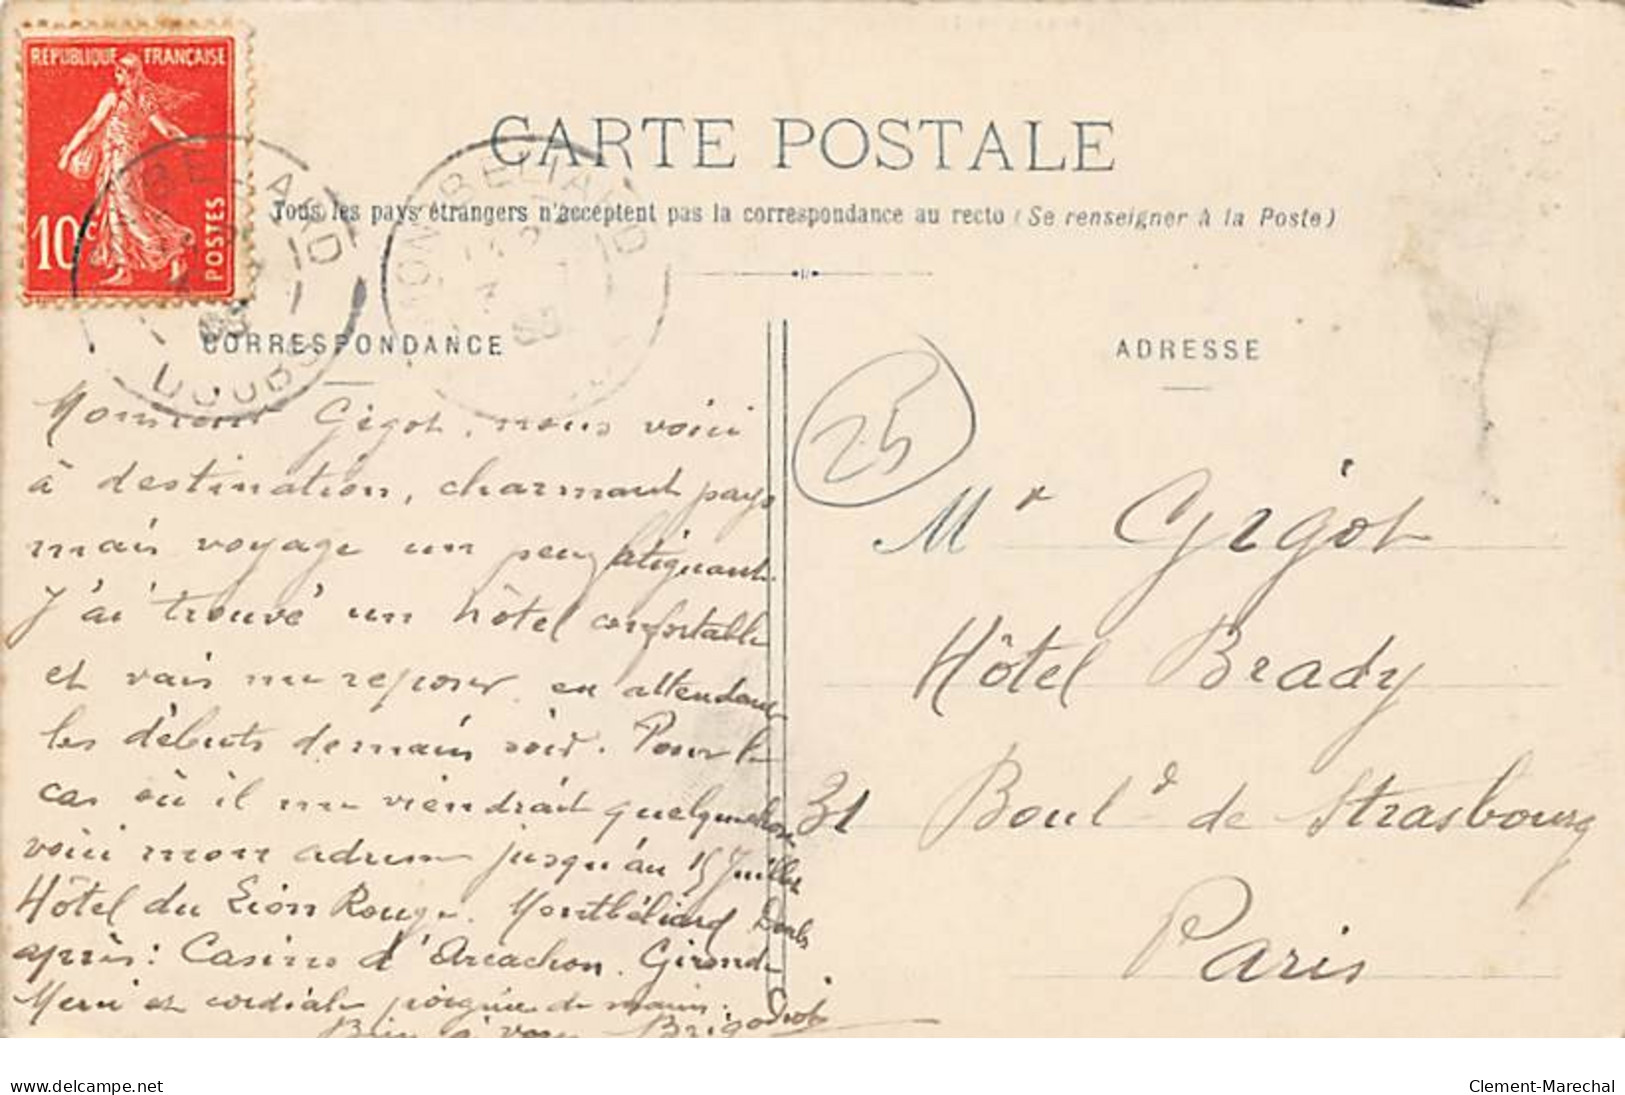 RÉPUBLIQUE FRANÇAISE
10c POSTES
MONTBELIARD
DOUBS
MONTBELIARD
CARTE POSTALE
Tous les pays étrangers n'acceptent pas la correspondance au recto (Se renseigner à la Poste)
CORRESPONDANCE
Monsieur Gigot, nous voici
à destination, charmant pays
mais voyage un peu fatiguant.
J'ai trouvé un hôtel confortable
et vais me reposer en attendant
les débuts demain soir. Pour le
cas où il me viendrait quelque chose
voici mon adresse jusqu'au 15 Juillet
Hôtel du Lion Rouge. Montbéliard Doubs
après: Casino d'Arcachon. Gironde
Merci et cordiale poignée de mains.
Bien à vous
25
ADRESSE
Mr Gigot
Hôtel Brady
31 Boul d de Strasbourg
Paris
www.delcampe.net
Clement-Marechal